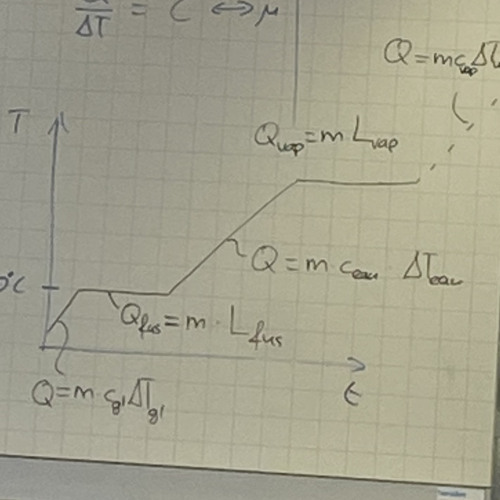 ΔT = C ↔ μ
Q = m c_vap ΔT
T
Q_vap = m L_vap
Q = m · c_eau ΔT_eau
0°C
Q_fus = m · L_fus
t
Q = m · c_gl ΔT_gl